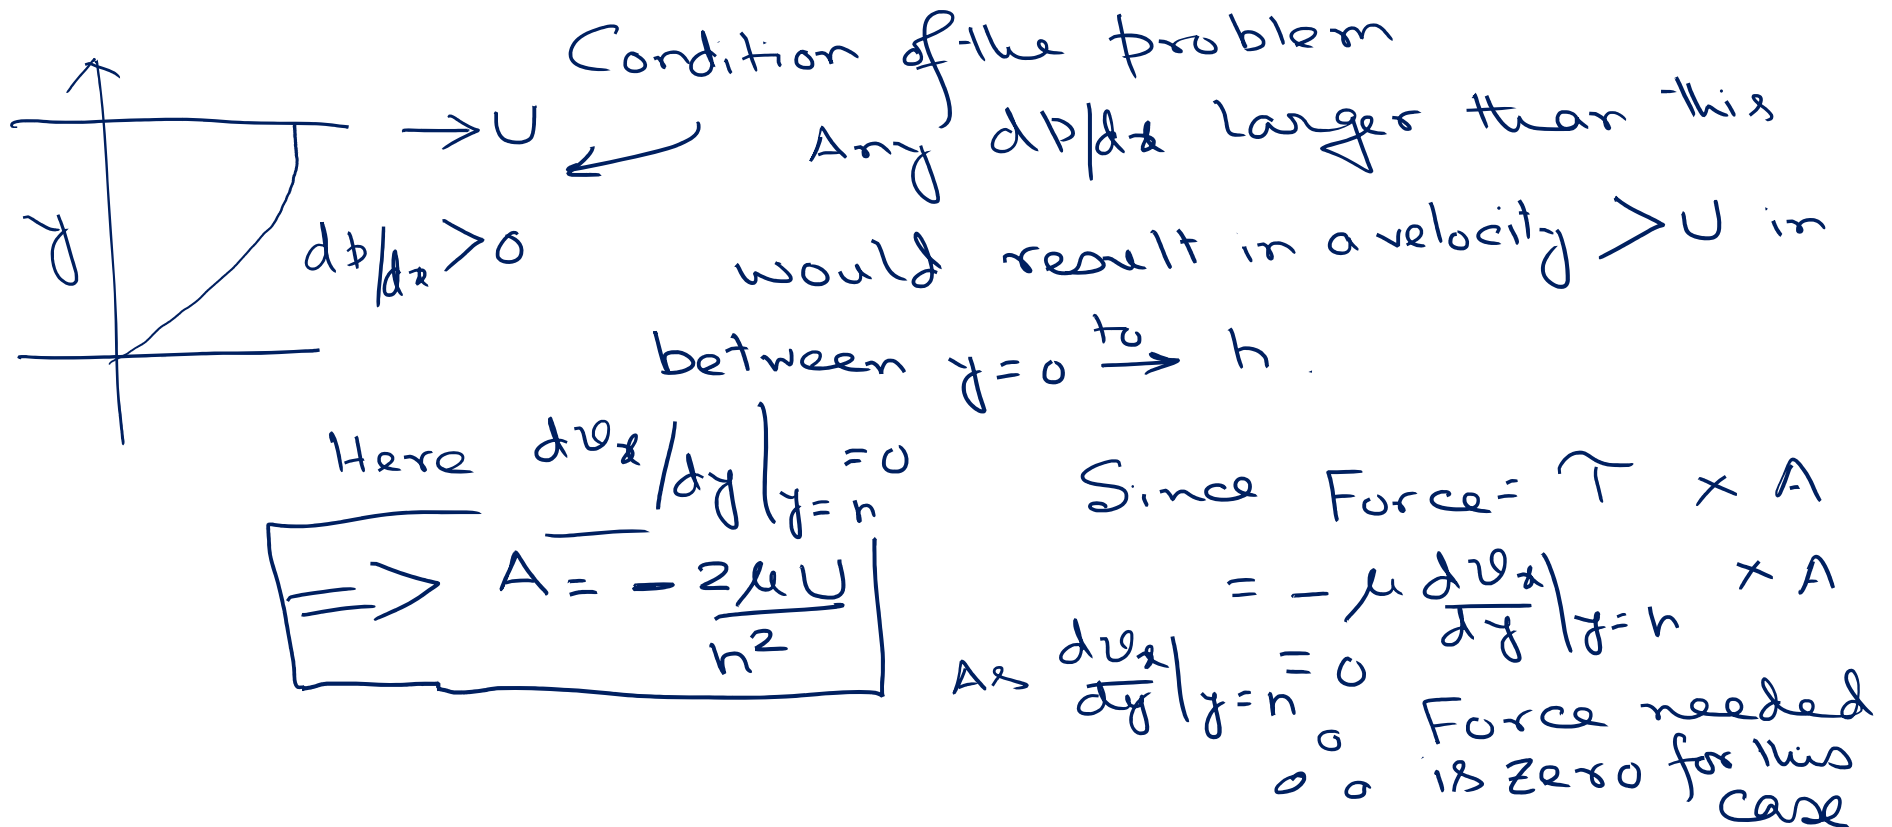 Condition of the problem
→ U
Any dp/dx larger than this
y
dp/dx > 0
would result in a velocity > U in
between y = 0 to → h
Here dv_x/dy |_{y=h} = 0
Since Force = τ × A
⇒ A = - 2μU / h²
= - μ dv_x/dy |_{y=h} × A
As dv_x/dy |_{y=h} = 0
∴ Force needed
is zero for this
case